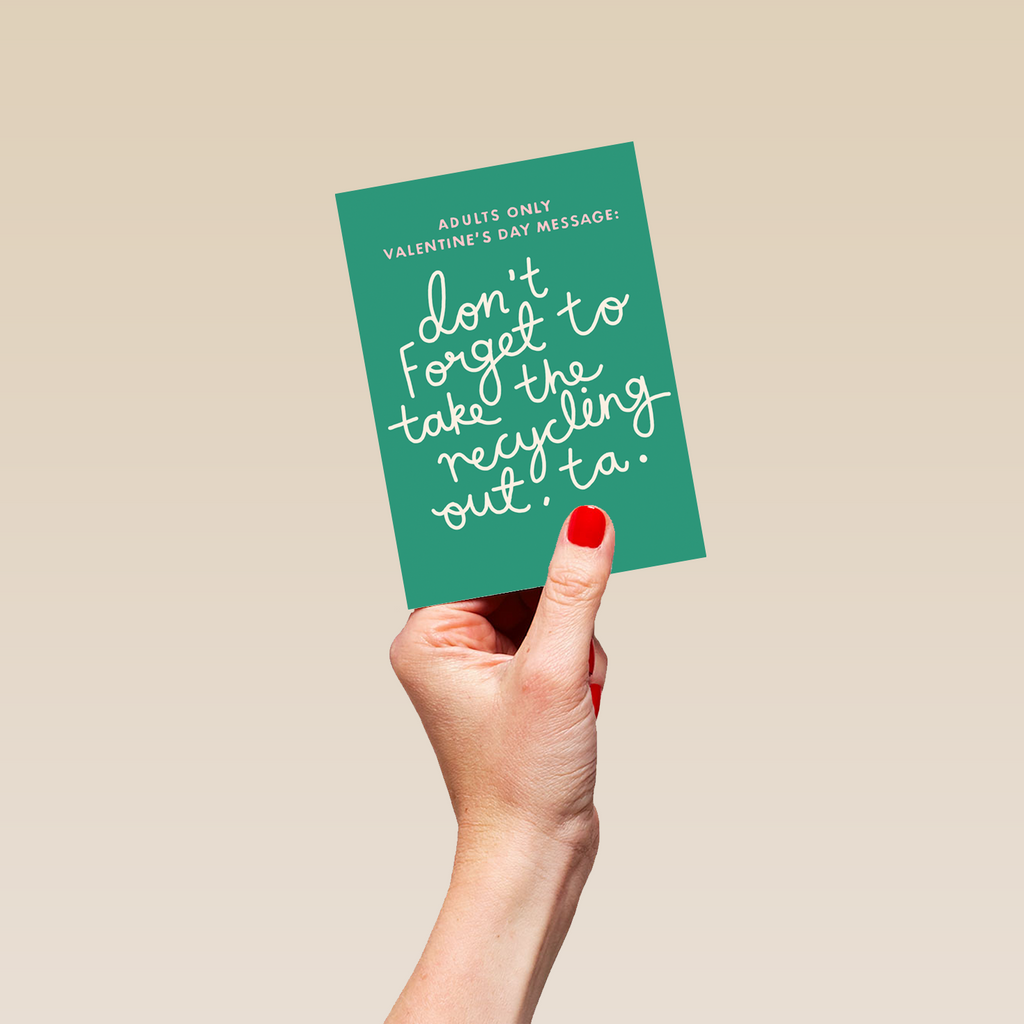 ADULTS ONLY
VALENTINE'S DAY MESSAGE:
don't
Forget to
take the
recycling
out. ta.